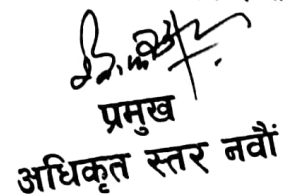 प्रमुख
अधिकृत स्तर नवौं